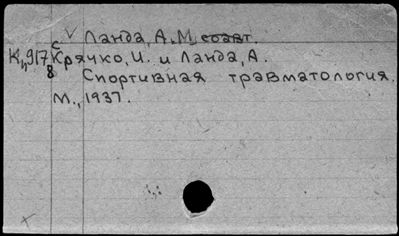 √ Ланда, А. М, соавт.
с
К„917 Крячко, И. и Ланда, А.
8 Спортивная травматология.
М., 1937.